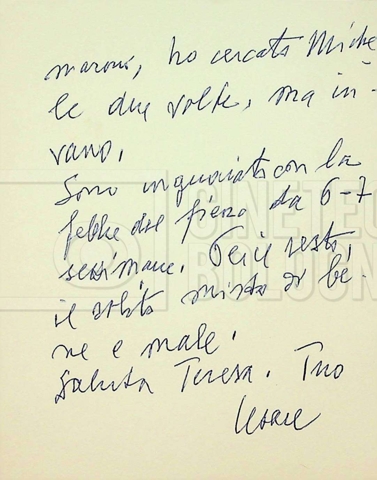 marono, ho cercato Miche
le due volte, ma in-
vano.
Sono inguaiato con la
febbre del fieno da 6-7
settimane. Per il resto,
il solito misto di be-
ne e male.
Saluta Teresa. Tuo
Cesare
CINETECA
BOLOGNA